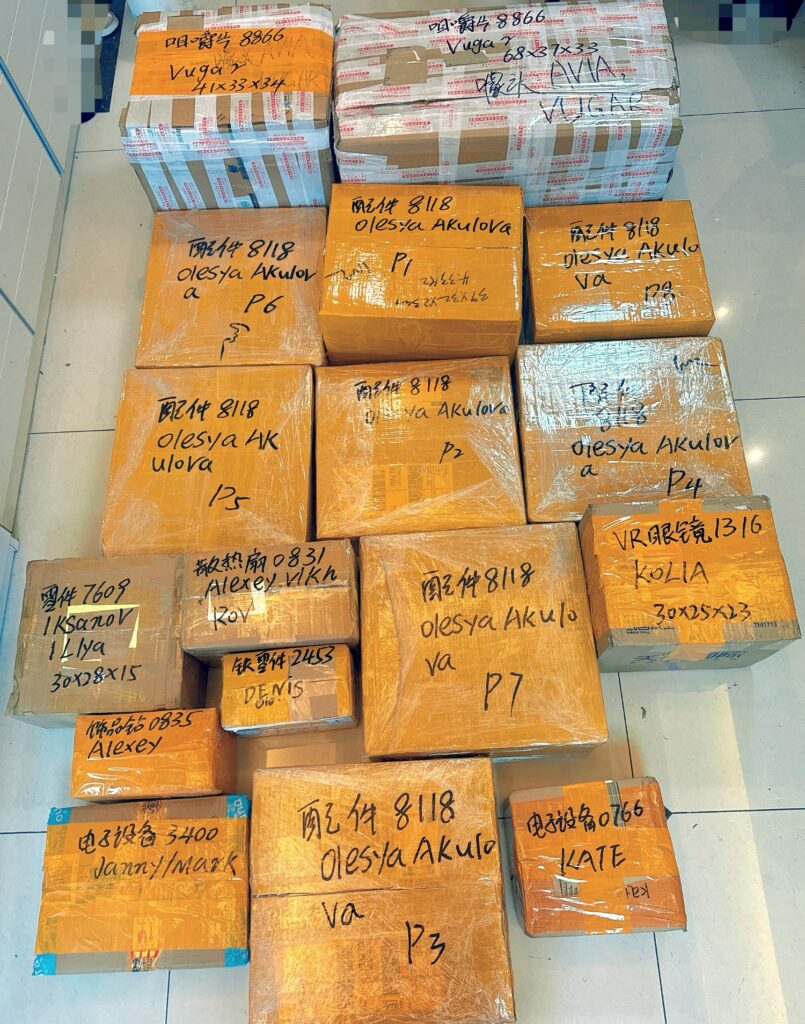 咀嚼片 8866
Vugar
41x33x34
咀嚼片 8866
Vugar
68x37x33
AVIA,
VUGAR
配件 8118
olesya AKulov
a
P6
配件 8118
olesya AKulova
P1
配件 8118
olesya AKulo
va
P8
配件 8118
olesya AK
ulova
P5
配件 8118
olesya AKulova
P2
配件
8118
olesya AKulov
a
P4
雪件 7609
IKsanov
ILIya
30x28x15
散热扇 0831
Alexey Vikh
Rov
配件 8118
olesya AKulo
va
P7
VR眼镜 1316
KOLIA
30x25x23
TM1713
2453
DENIS
饰品钻 0835
Alexey
电子设备 3400
Janny/Mark
配件 8118
olesya AKulo
va
P3
电子设备 0766
KATE